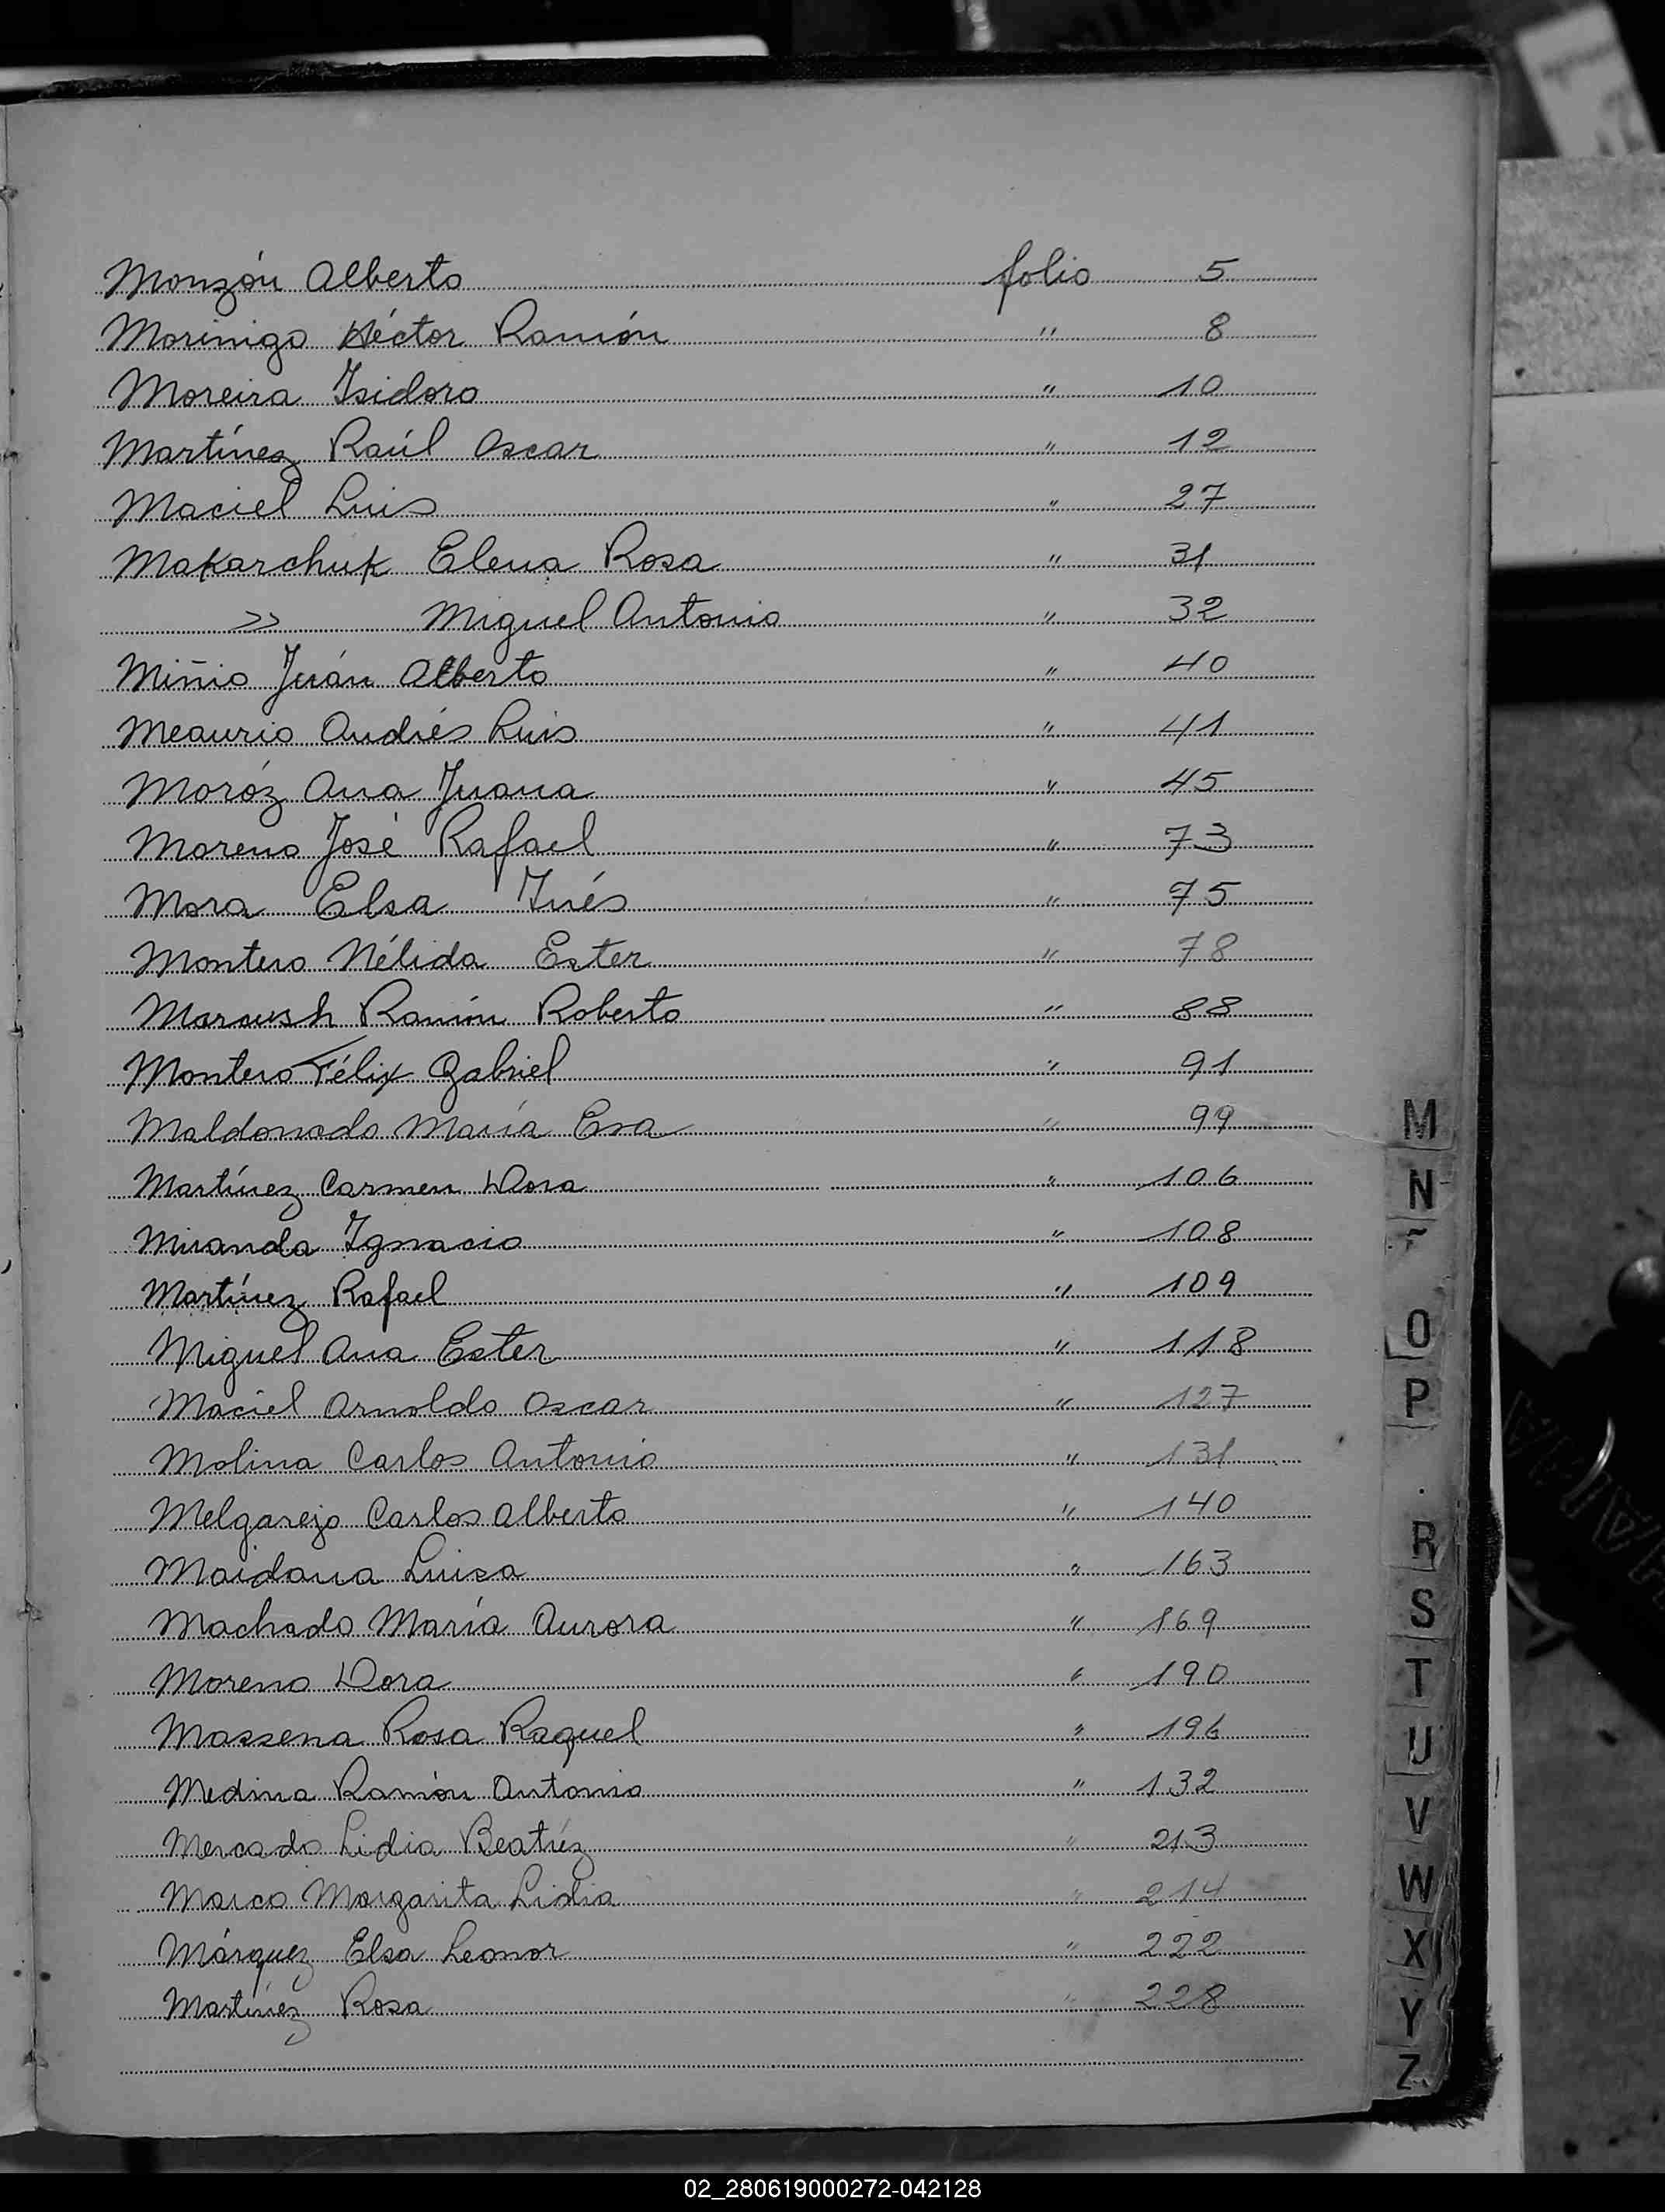 Monzón Alberto folio 5
Morinigo Héctor Ramón " 8
Moreira Isidoro " 10
Martínez Raúl Oscar " 12
Maciel Luis " 27
Makarchuk Elena Rosa " 31
>> Miguel Antonio " 32
Miñio Juán Alberto " 40
Meaurio Andrés Luis " 41
Moróz Ana Juana " 45
Moreno José Rafael " 73
Mora Elsa Inés " 75
Montero Nélida Ester " 78
Ramón Roberto " 88
Montero Félix Gabriel " 91
Maldonado María Eva " 99
Martínez Carmen Dora " 106
Miranda Ignacio " 108
Martínez Rafael " 109
Miguel Ana Ester " 118
Maciel Arnoldo Oscar " 127
Molina Carlos Antonio " 131
Melgarejo Carlos Alberto " 140
Maidana Luisa " 163
Machado María Aurora " 169
Moreno Dora " 190
Massena Rosa Raquel " 196
Medina Ramón Antonio " 132
Mercado Lidia Beatríz " 213
Marco Margarita Lidia " 214
Márquez Elsa Leonor " 222
Martínez Rosa " 228
M
N
~
O
P
R
S
T
U
V
W
X
Y
Z
02_280619000272-042128